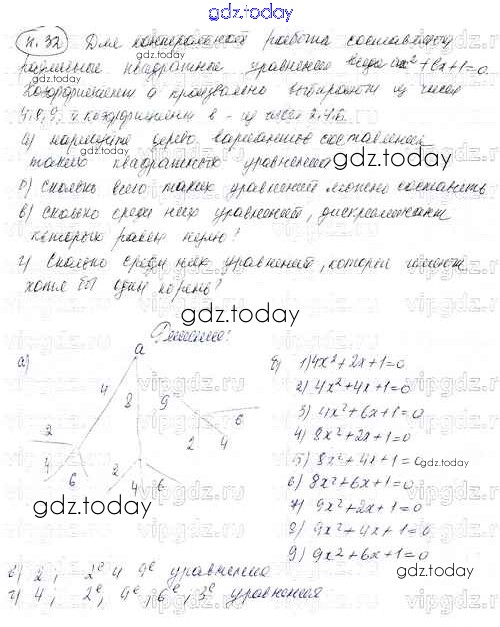 gdz.today
п.32 Для контрольной работы составляют
различные квадратные уравнения вида ax²+bx+1=0.
Коэффициент a произвольно выбирают из чисел
4.8.9, а коэффициент b - из чисел 2.4.6.
а) нарисуйте дерево вариантов составления
такого квадратного уравнения
gdz.today
б) сколько всего таких уравнений можно составить
в) сколько среди них уравнений, дискриминант
которых равен нулю?
г) сколько среди них уравнений, которые имеют
хотя бы один корень?
gdz.today
Решение:
а) a
4 8 9
2 4 6
2 4 6
2 4 6
б) 1) 4x²+2x+1=0
2) 4x²+4x+1=0
3) 4x²+6x+1=0
4) 8x²+2x+1=0
5) 8x²+4x+1=0
6) 8x²+6x+1=0
7) 9x²+2x+1=0
8) 9x²+4x+1=0
9) 9x²+6x+1=0
gdz.today
gdz.today
gdz.today
в) 2; 2е и 9е уравнения
г) 4; 2е, 9е, 6е, 3е уравнения